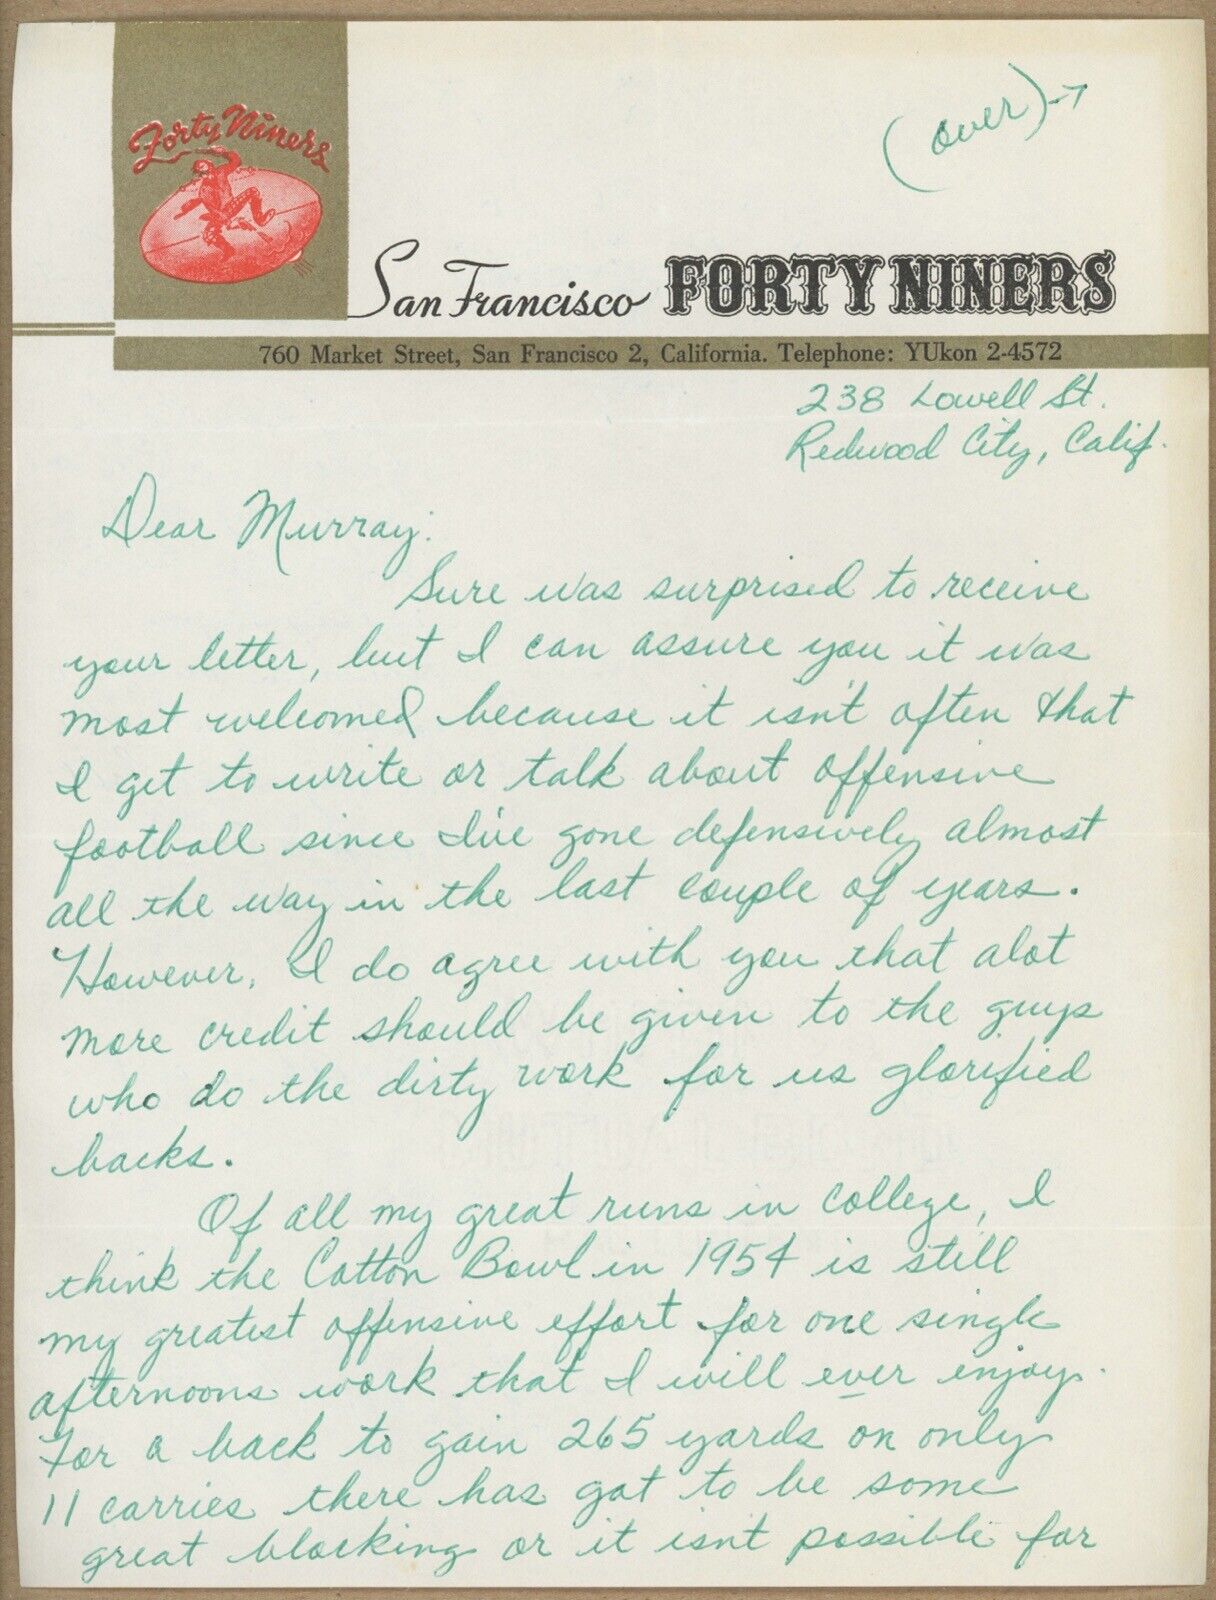 (over)→
Forty Niners
San Francisco FORTY NINERS
760 Market Street, San Francisco 2, California. Telephone: YUkon 2-4572
238 Lowell St.
Redwood City, Calif.
Dear Murray:
Sure was surprised to receive
your letter, but I can assure you it was
most welcomed because it isn't often that
I get to write or talk about offensive
football since I've gone defensively almost
all the way in the last couple of years.
However, I do agree with you that alot
more credit should be given to the guys
who do the dirty work for us glorified
backs.
Of all my great runs in college, I
think the Cotton Bowl in 1954 is still
my greatest offensive effort for one single
afternoons work that I will ever enjoy.
For a back to gain 265 yards on only
11 carries there has got to be some
great blocking or it isn't possible for